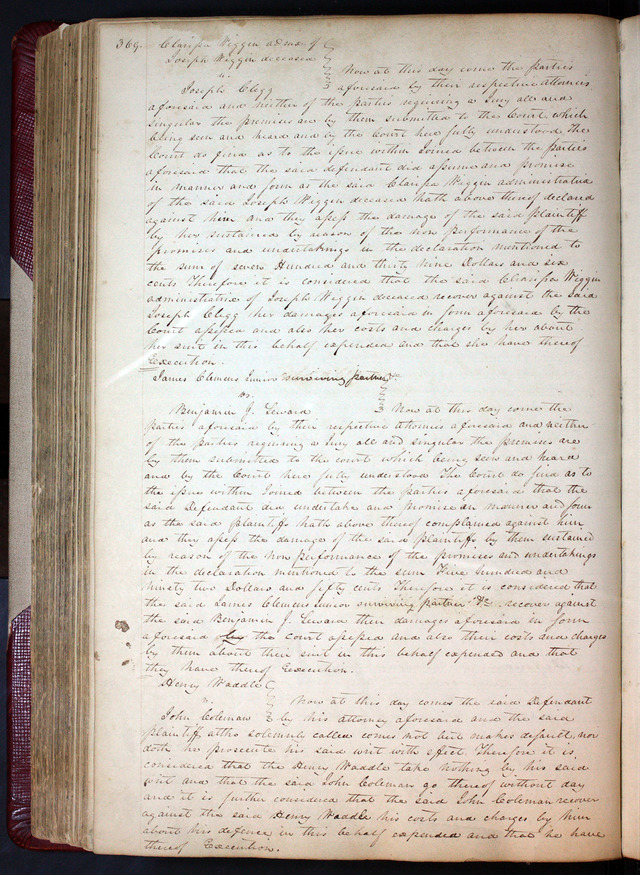 369. Clarissa Wiggin admx of
Joseph Wiggin deceased
vs
Now at this day come the parties
Joseph Clegg aforesaid by their respective attornies
aforesaid and neither of the parties requiring a Jury all and
singular the premises are by them submitted to the Court which
being seen and heard and by the Court here fully understood the
Court do find as to the issue within Joined between the parties
aforesaid that the said defendant did assume and promise
in manner and form as the said Clarissa Wiggin administratrix
of the said Joseph Wiggin deceased hath above thereof declared
against him and they assess the damage of the said plaintiff
by her sustained by reason of the non performance of the
promises and undertakings in the declaration mentioned to
the sum of seven Hundred and thirty nine Dollars and six
cents Therefore it is considered that the said Clarissa Wiggin
administratrix of Joseph Wiggin deceased recover against the said
Joseph Clegg her damages aforesaid in form aforesaid by the
Court assessed and also her costs and charges by her about
her suit in this behalf expended and that she have thereof
Execution.
James Clemens Junior surviving partner &c
vs.
Benjamin J. Seward Now at this day come the
parties aforesaid by their respective attornies aforesaid and neither
of the parties requiring a Jury all and singular the premises are
by them submitted to the court which being seen and heard
and by the Court here fully understood The Court do find as to
the issue within Joined between the parties aforesaid that the
said Defendant did undertake and promise in manner and form
as the said plaintiffs hath above thereof complained against him
and they assess the damage of the said plaintiffs by them sustained
by reason of the Non performance of the promises and undertakings
in the declaration mentioned to the sum Five hundred and
ninety two Dollars and fifty cents Therefore it is considered that
the said James Clemens Junior surviving partner &c. recover against
the said Benjamin J. Seward their damages aforesaid in form
aforesaid by the Court assessed and also their costs and charges
by them about their suit in this behalf expended and that
they have thereof Execution.
Henry Waddle
vs. Now at this day comes the said Defendant
John Coleman by his attorney aforesaid and the said
plaintiff altho solemnly called comes not but makes default, nor
doth he prosecute his said writ with effect. Therefore it is
considered that the Henry Waddle take nothing by his said
writ and that the said John Coleman go thereof without day
and it is further considered that the said John Coleman recover
against the said Henry Waddle his costs and charges by him
about his defence in this behalf expended and that he have
thereof Execution.